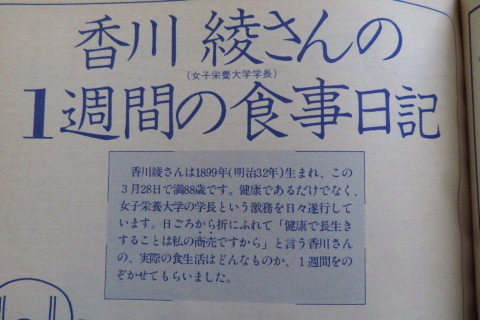 香川 綾さんの
(女子栄養大学学長)
1週間の食事日記
香川綾さんは1899年(明治32年)生まれ、この
3月28日で満88歳です。健康であるだけでなく、
女子栄養大学の学長という激務を日々遂行して
います。日ごろから折にふれて「健康で長生き
することは私の商売ですから」と言う香川さん
の、実際の食生活はどんなものか、1週間をの
ぞかせてもらいました。